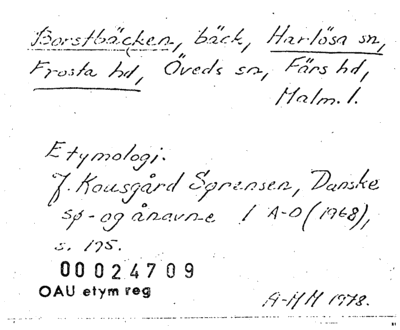 Borstbäcken, bäck, Harlösa sn,
Frosta hd, Öveds sn, Färs hd,
Malm. l.
Etymologi.
J. Kousgård Sørensen, Danske
sø- og ånavne 1 A-D (1968),
s. 195.
00024709
OAU etym reg
A-MM 1978.